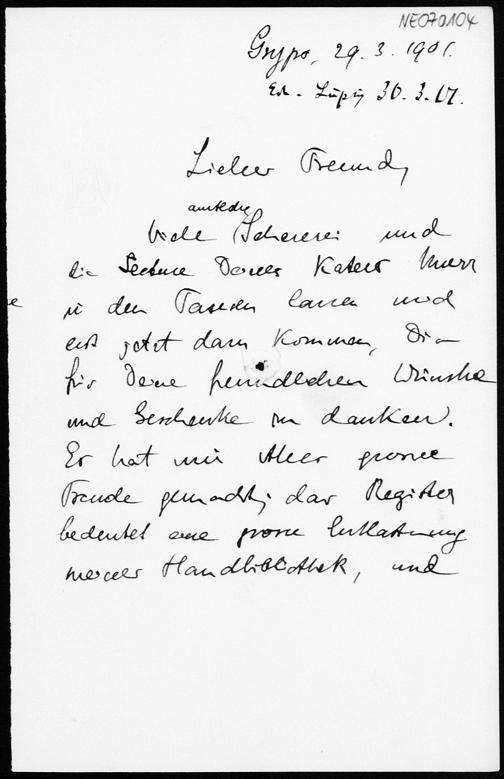 NEO70104
Gryps, 29. 3. 1901.
Leipzig 30. 3. 01.
Lieber Freund,
amtliche
Viele Schererei und
die Lecture Deines Katers Murr
in den Tasten lassen mich
erst jetzt dazu kommen, Dir
für Deine freundlichen Wünsche
und Geschenke zu danken.
Er hat mir grosse
Freude gemacht; das Register
bedeutet eine grosse Entlastung
meiner Handbibliothek, und